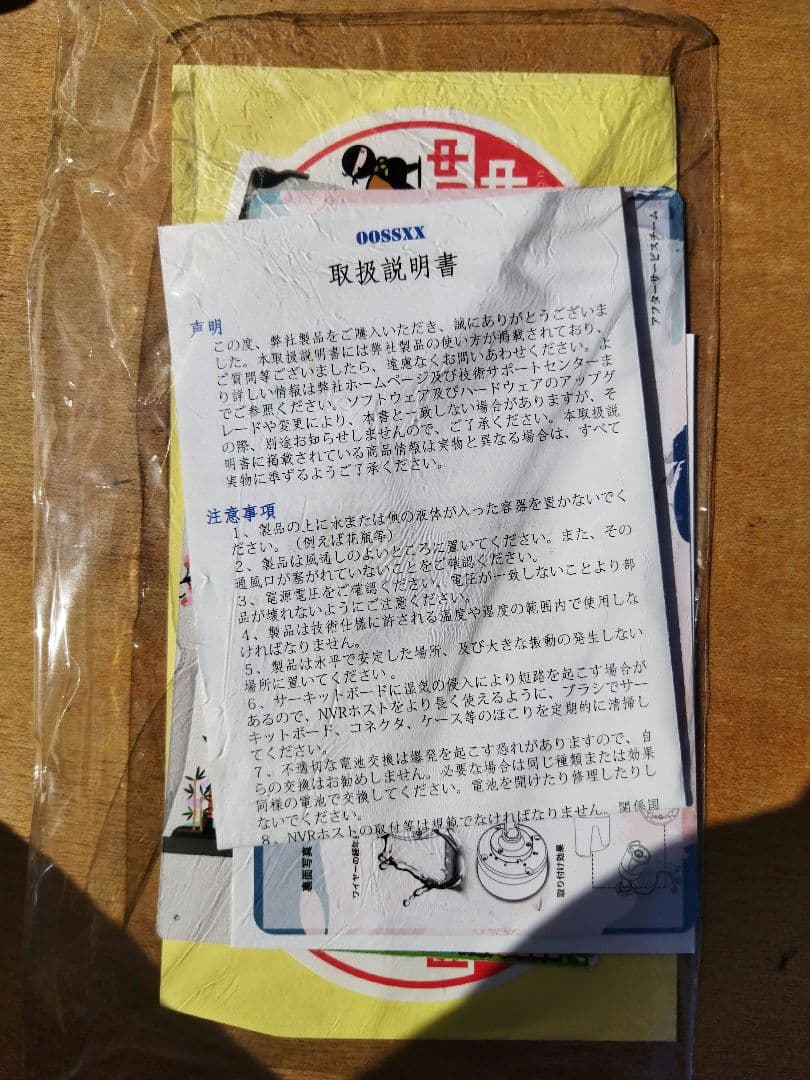 OOSSXX
取扱説明書
声明
この度、弊社製品をご購入いただき、誠にありがとうございま
した。本取扱説明書には弊社製品の使い方が掲載されており、
ご質問等ございましたら、遠慮なくお問いあわせください。よ
り詳しい情報は弊社ホームページ及び技術サポートセンターま
でご参照ください。ソフトウェア及びハードウェアのアップグ
レードや変更により、本書と一致しない場合がありますが、そ
の際、別途お知らせしませんので、ご了承ください。本取扱説
明書に掲載されている商品情報は実物と異なる場合は、すべて
実物に準ずるようご了承ください。
注意事項
1、製品の上に水または他の液体が入った容器を置かないでく
ださい。（例えば花瓶等）
2、製品は風通しのよいところに置いてください。また、その
通風口が塞がれていないことをご確認ください。
3、電源電圧をご確認ください。電圧が一致しないことより部
品が壊れないようにご注意ください。
4、製品は技術仕様に許される温度や湿度の範囲内で使用しな
ければなりません。
5、製品は水平で安定した場所、及び大きな振動の発生しない
場所に置いてください。
6、サーキットボードに湿気の侵入により短路を起こす場合が
あるので、NVRホストをより長く使えるように、ブラシでサー
キットボード、コネクタ、ケース等のほこりを定期的に清掃し
てください。
7、不適切な電池交換は爆発を起こす恐れがありますので、自
らの交換はお勧めしません。必要な場合は同じ種類または効果
同様の電池で交換してください。電池を開けたり修理したりし
ないでください。
8、NVRホストの取付等は規範でなければなりません。関係国
アフターサービスチーム
裏面写真
ワイヤーの
取り付け効果